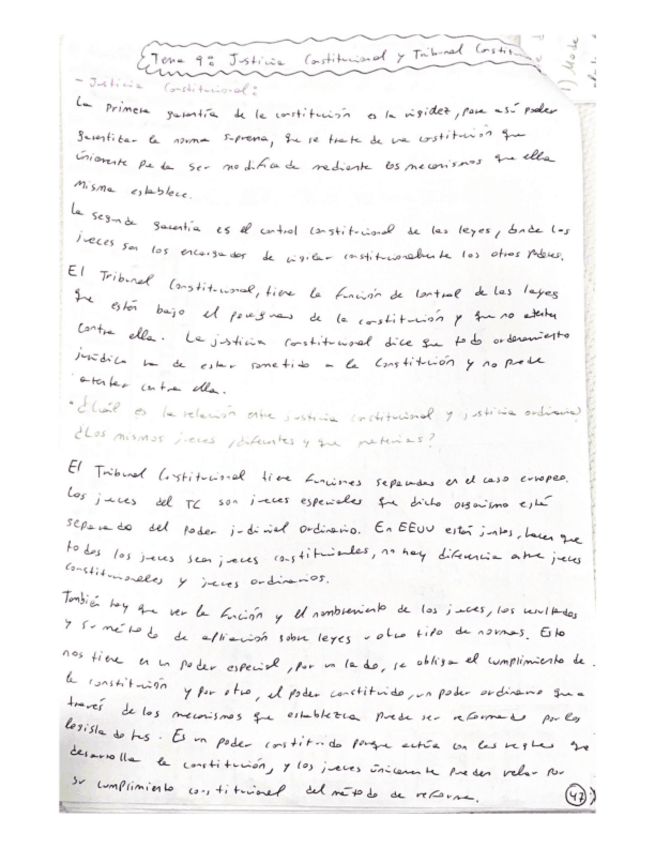 Tema 9: Justicia Constitucional y Tribunal
- Justicia Constitucional:
La primera garantía de la constitución es la rigidez, para así poder
garantizar la norma suprema, que se trate de una constitución que
únicamente pueda ser modificada mediante los mecanismos que ella
misma establece.
La segunda garantía es el control constitucional de las leyes, donde los
jueces son los encargados de vigilar constitucionalmente los otros poderes.
El Tribunal Constitucional, tiene la función de control de las leyes
que están bajo el paraguas de la constitución y que no atenten
contra ella. La justicia constitucional dice que todo ordenamiento
jurídico va de estar sometido a la Constitución y no puede
atentar contra ella.
¿Cuál es la relación entre justicia constitucional y justicia ordinaria?
¿Los mismos jueces, diferentes y que materias?
El Tribunal Constitucional tiene funciones separadas en el caso europeo.
Los jueces del TC son jueces especiales que dicho organismo está
separado del poder judicial ordinario. En EEUU están juntos, hacen que
todos los jueces sean jueces constitucionales, no hay diferencia entre jueces
constitucionales y jueces ordinarios.
También hay que ver la función y el nombramiento de los jueces, los resultados
y su método de sobre leyes u otro tipo de normas. Esto
nos tiene en un poder especial, por un lado, se obliga el cumplimiento de
la constitución y por otro, el poder constituido, un poder ordinario que a
través de los mecanismos que establezca puede ser reformado por los
legisladores. Es un poder constituido porque actúa con las reglas que
desarrolla la constitución, y los jueces únicamente pueden velar por
su cumplimiento constitucional del método de reforma.
47